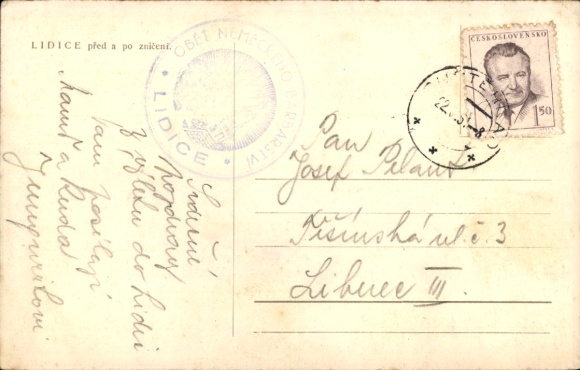 LIDICE před a po zničení.
OBĚŤ NĚMECKÉHO BARBARSTVÍ
LIDICE
ČESKOSLOVENSKO
1,50
Srdečné
pozdravy
z výletu do Lidic
Vám posílají
Máňa a Ruda
Pan
Josef Pelant
Těšínská ul. č. 3
Liberec III.